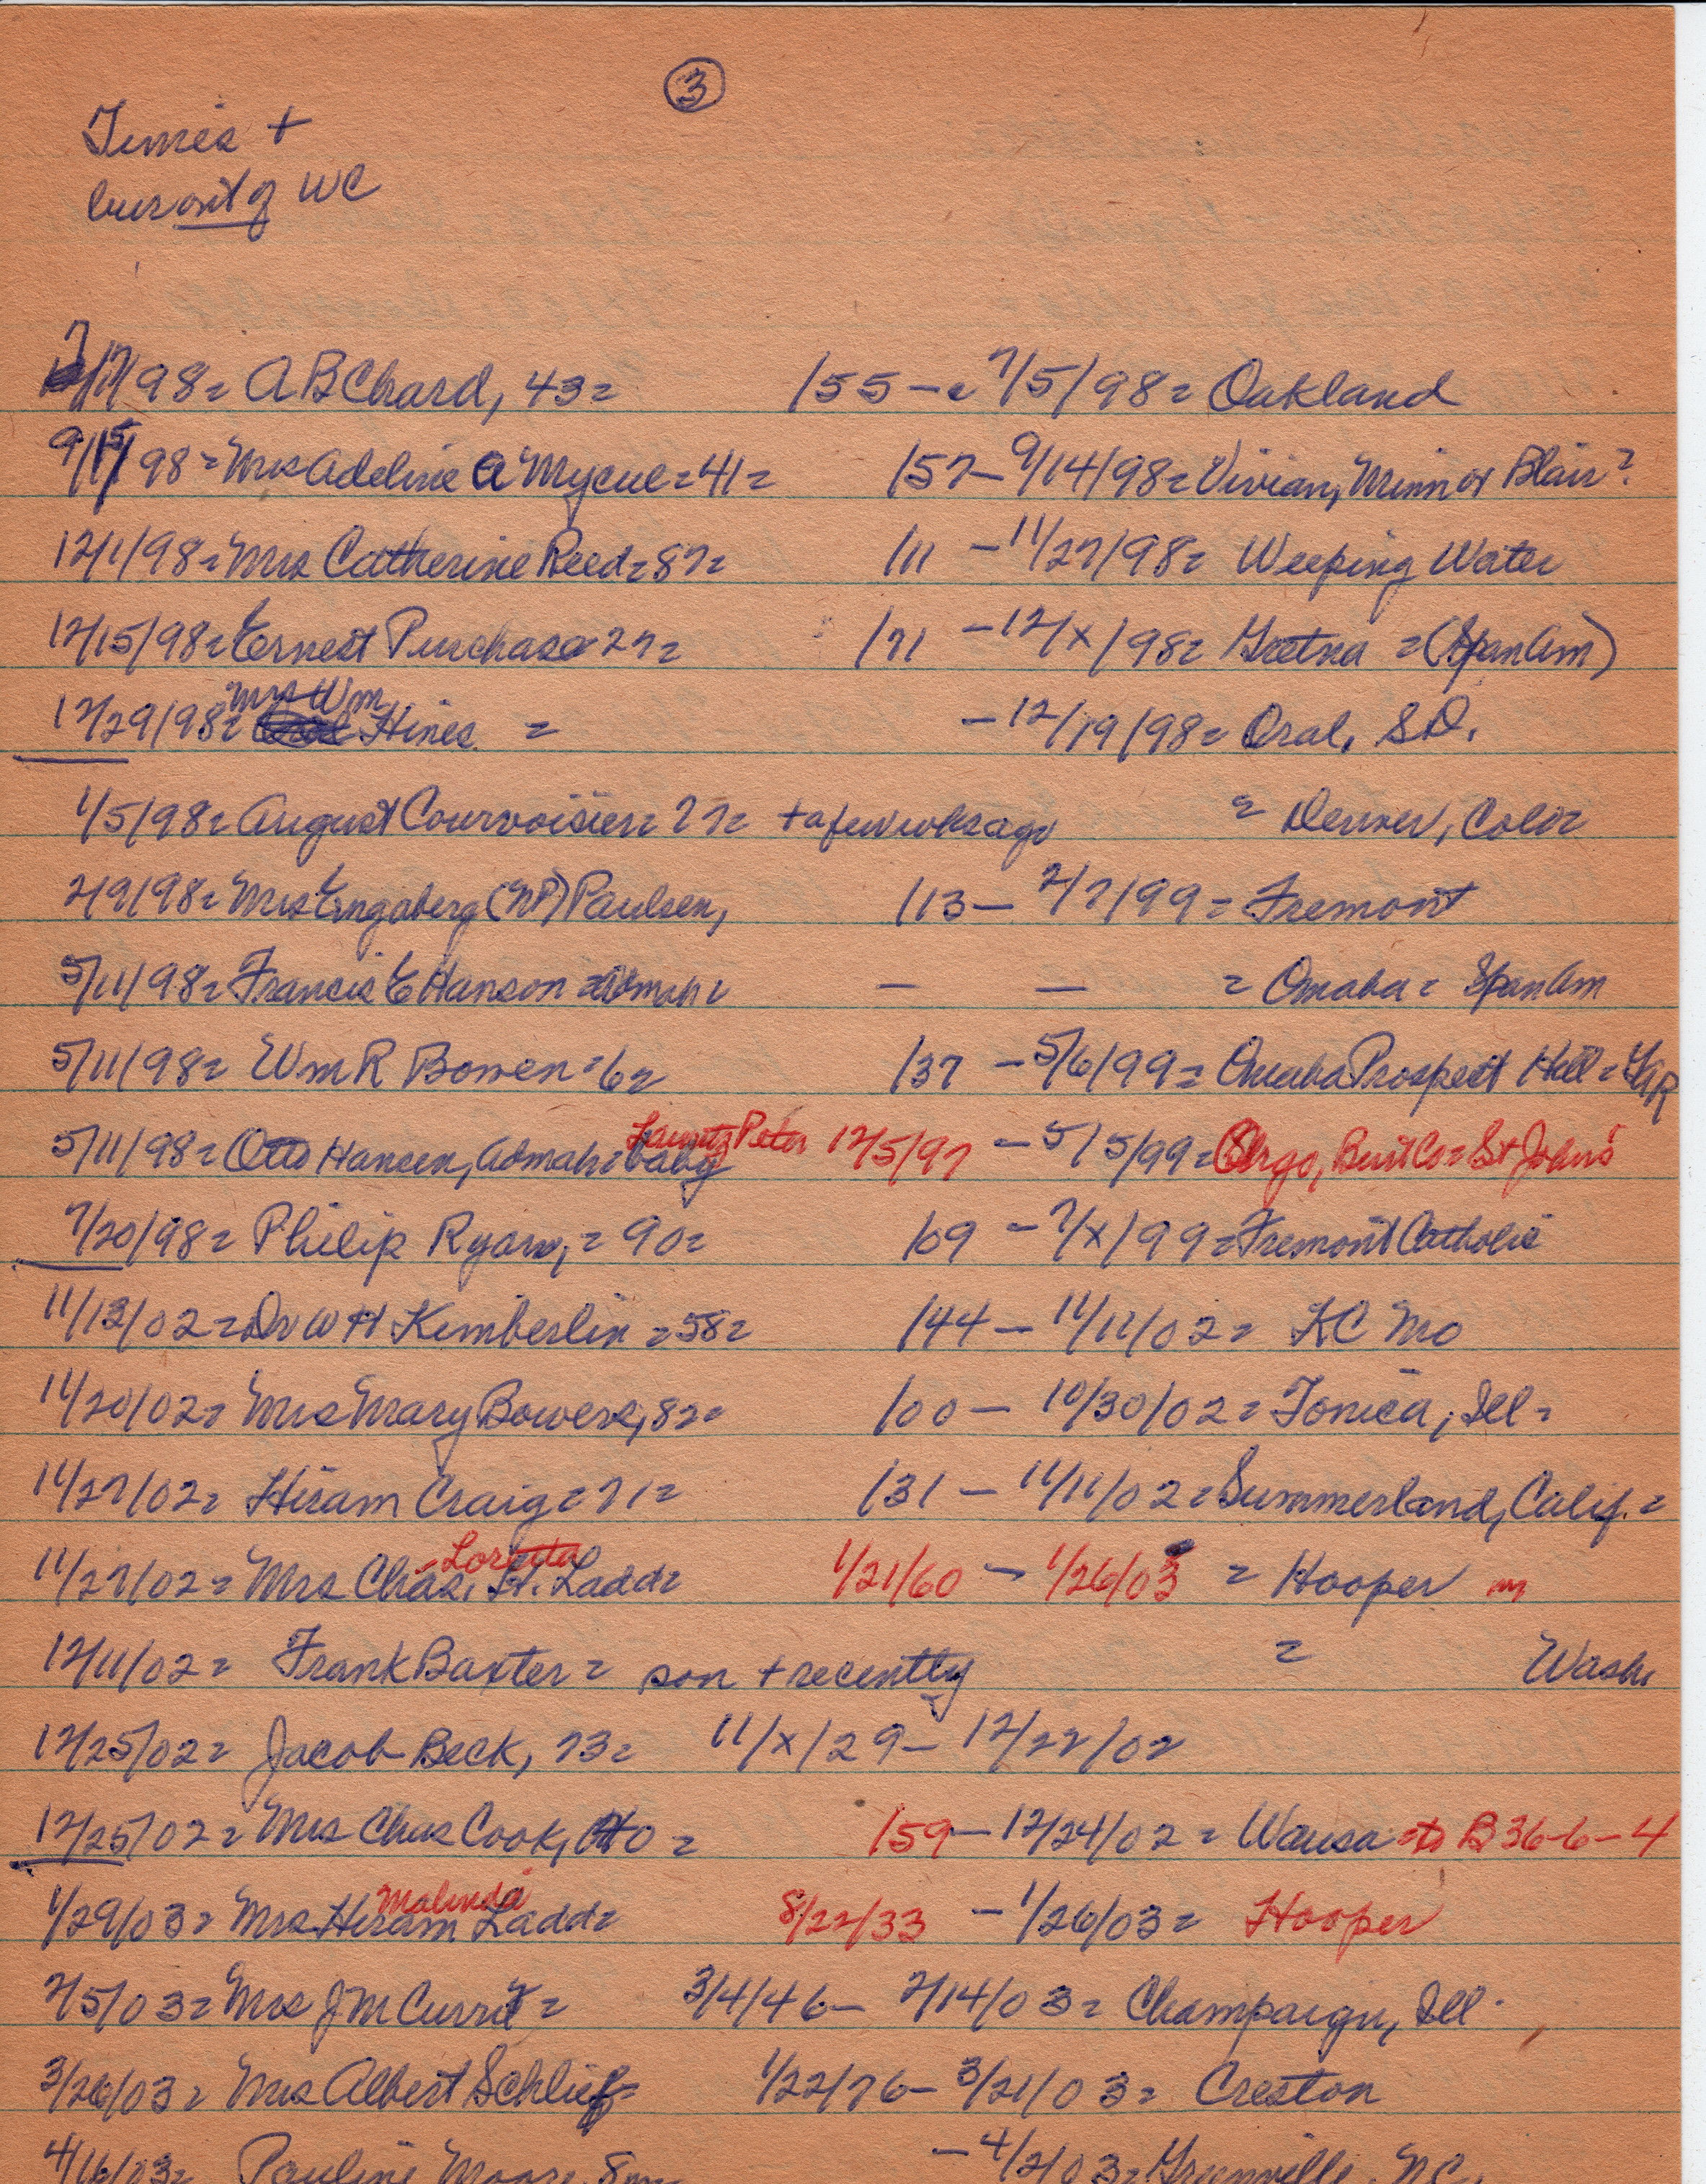 3
Times +
out of WC
7/ /98 = A B Chard, 43 = /55 - 7/5/98 = Oakland
9/15/98 = Mrs Adeline A Mycue = 41 = /57 - 9/14/98 = Vivian, Minn or Blair?
12/1/98 = Mrs Catherine Reed = 87 = /11 - 11/27/98 = Weeping Water
12/15/98 = Ernest Purchase 27 = /71 - 12/x/98 = Gretna = (SpanAm)
12/29/98 = Mrs Wm Hines = - 12/19/98 = Oral, S.D.
1/5/98 = August Courvoisier = 27 = + a few wks ago = Denver, Colo =
2/9/98 = Mrs Engaberg (NP) Paulsen, /13 - 2/7/99 = Fremont
5/11/98 = Francis E Hanson = Admah = — — = Omaha = SpanAm
5/11/98 = Wm R Bowen = 62 /37 - 5/6/99 = Omaha Prospect Hill = GAR
5/11/98 = Otto Hansen, Admah = baby Lauritz Peter 12/5/97 - 5/5/99 = Burt Co = St John's
7/20/98 = Philip Ryan, = 90 = /09 - 7/x/99 = Fremont Catholic
11/13/02 = Dr W H Kimberlin = 58 = /44 - 11/11/02 = KC Mo
11/20/02 = Mrs Mary Bowers, 82 = /00 - 10/30/02 = Tonica, Ill =
11/27/02 = Hiram Craig = 71 = /31 - 11/11/02 = Summerland, Calif. =
11/27/02 = Mrs Chas. H. Ladd = Loretta 1/21/60 - 1/26/03 = Hooper
12/11/02 = Frank Baxter = son + recently = Wash.
12/25/02 = Jacob Beck, 73 = 11/x/29 - 12/22/02
12/25/02 = Mrs Chas Cook, = /59 - 12/24/02 = Wausa = to B 36-6-4
1/29/03 = Mrs Hiram Ladd = Malinda 8/22/33 - 1/26/03 = Hooper
2/5/03 = Mrs J M Currit = 3/4/46 - 2/14/03 = Champaign, Ill.
3/26/03 = Mrs Albert Schlief = 1/22/76 - 3/21/03 = Creston
4/16/03 = Pauline Moore, 8 - 4/2/03 = Greenville, N.C.